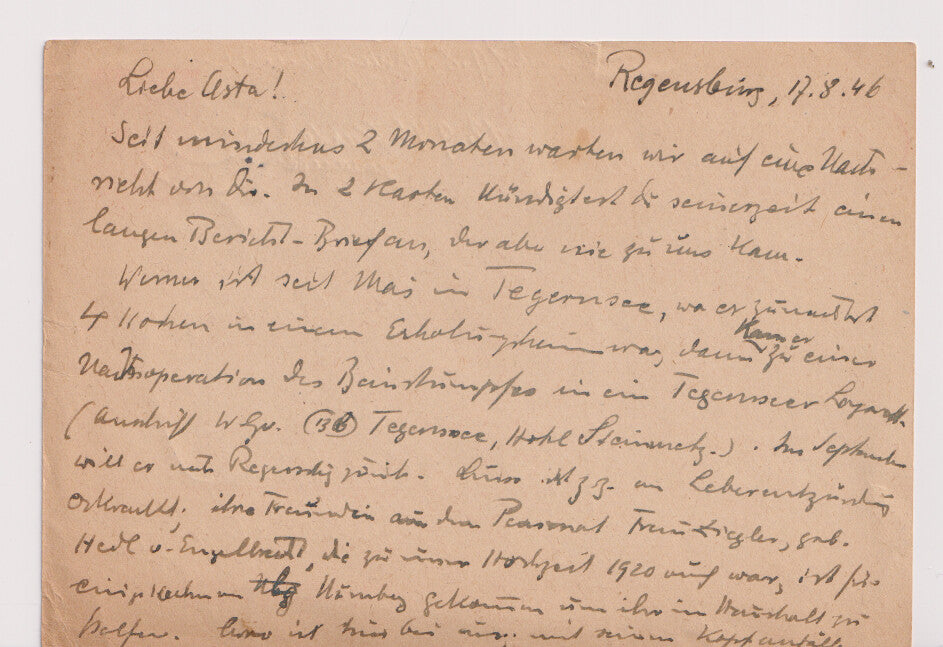 Regensburg, 17.8.46
Liebe Asta!
Seit mindestens 2 Monaten warten wir auf eine Nach-
richt von Dir. In 2 Karten kündigtest Du seinerzeit einen
langen Bericht-Brief an, der aber nie zu uns kam.
Werner ist seit Mai in Tegernsee, wo er zunächst
4 Wochen in einem Erholungsheim war, dann kam er zu einer
Nachoperation des Beinstumpfes in ein Tegernseer Lazarett.
(Anschrift W. Gr. (13b) Tegernsee, Hotel Steinmetz.). Im September
will er nach Regensbg zurück. ist z.Z. an Leberentzündung
erkrankt; ihre Freundin aus dem Pensionat Frau Ziegler, geb.
Hedl v. Engelbrecht, die zu unserer Hochzeit 1920 auch war, ist für
einige Wochen Nbg Nürnberg gekommen um ihr im Haushalt zu
helfen. ist hier bei uns, mit seinem